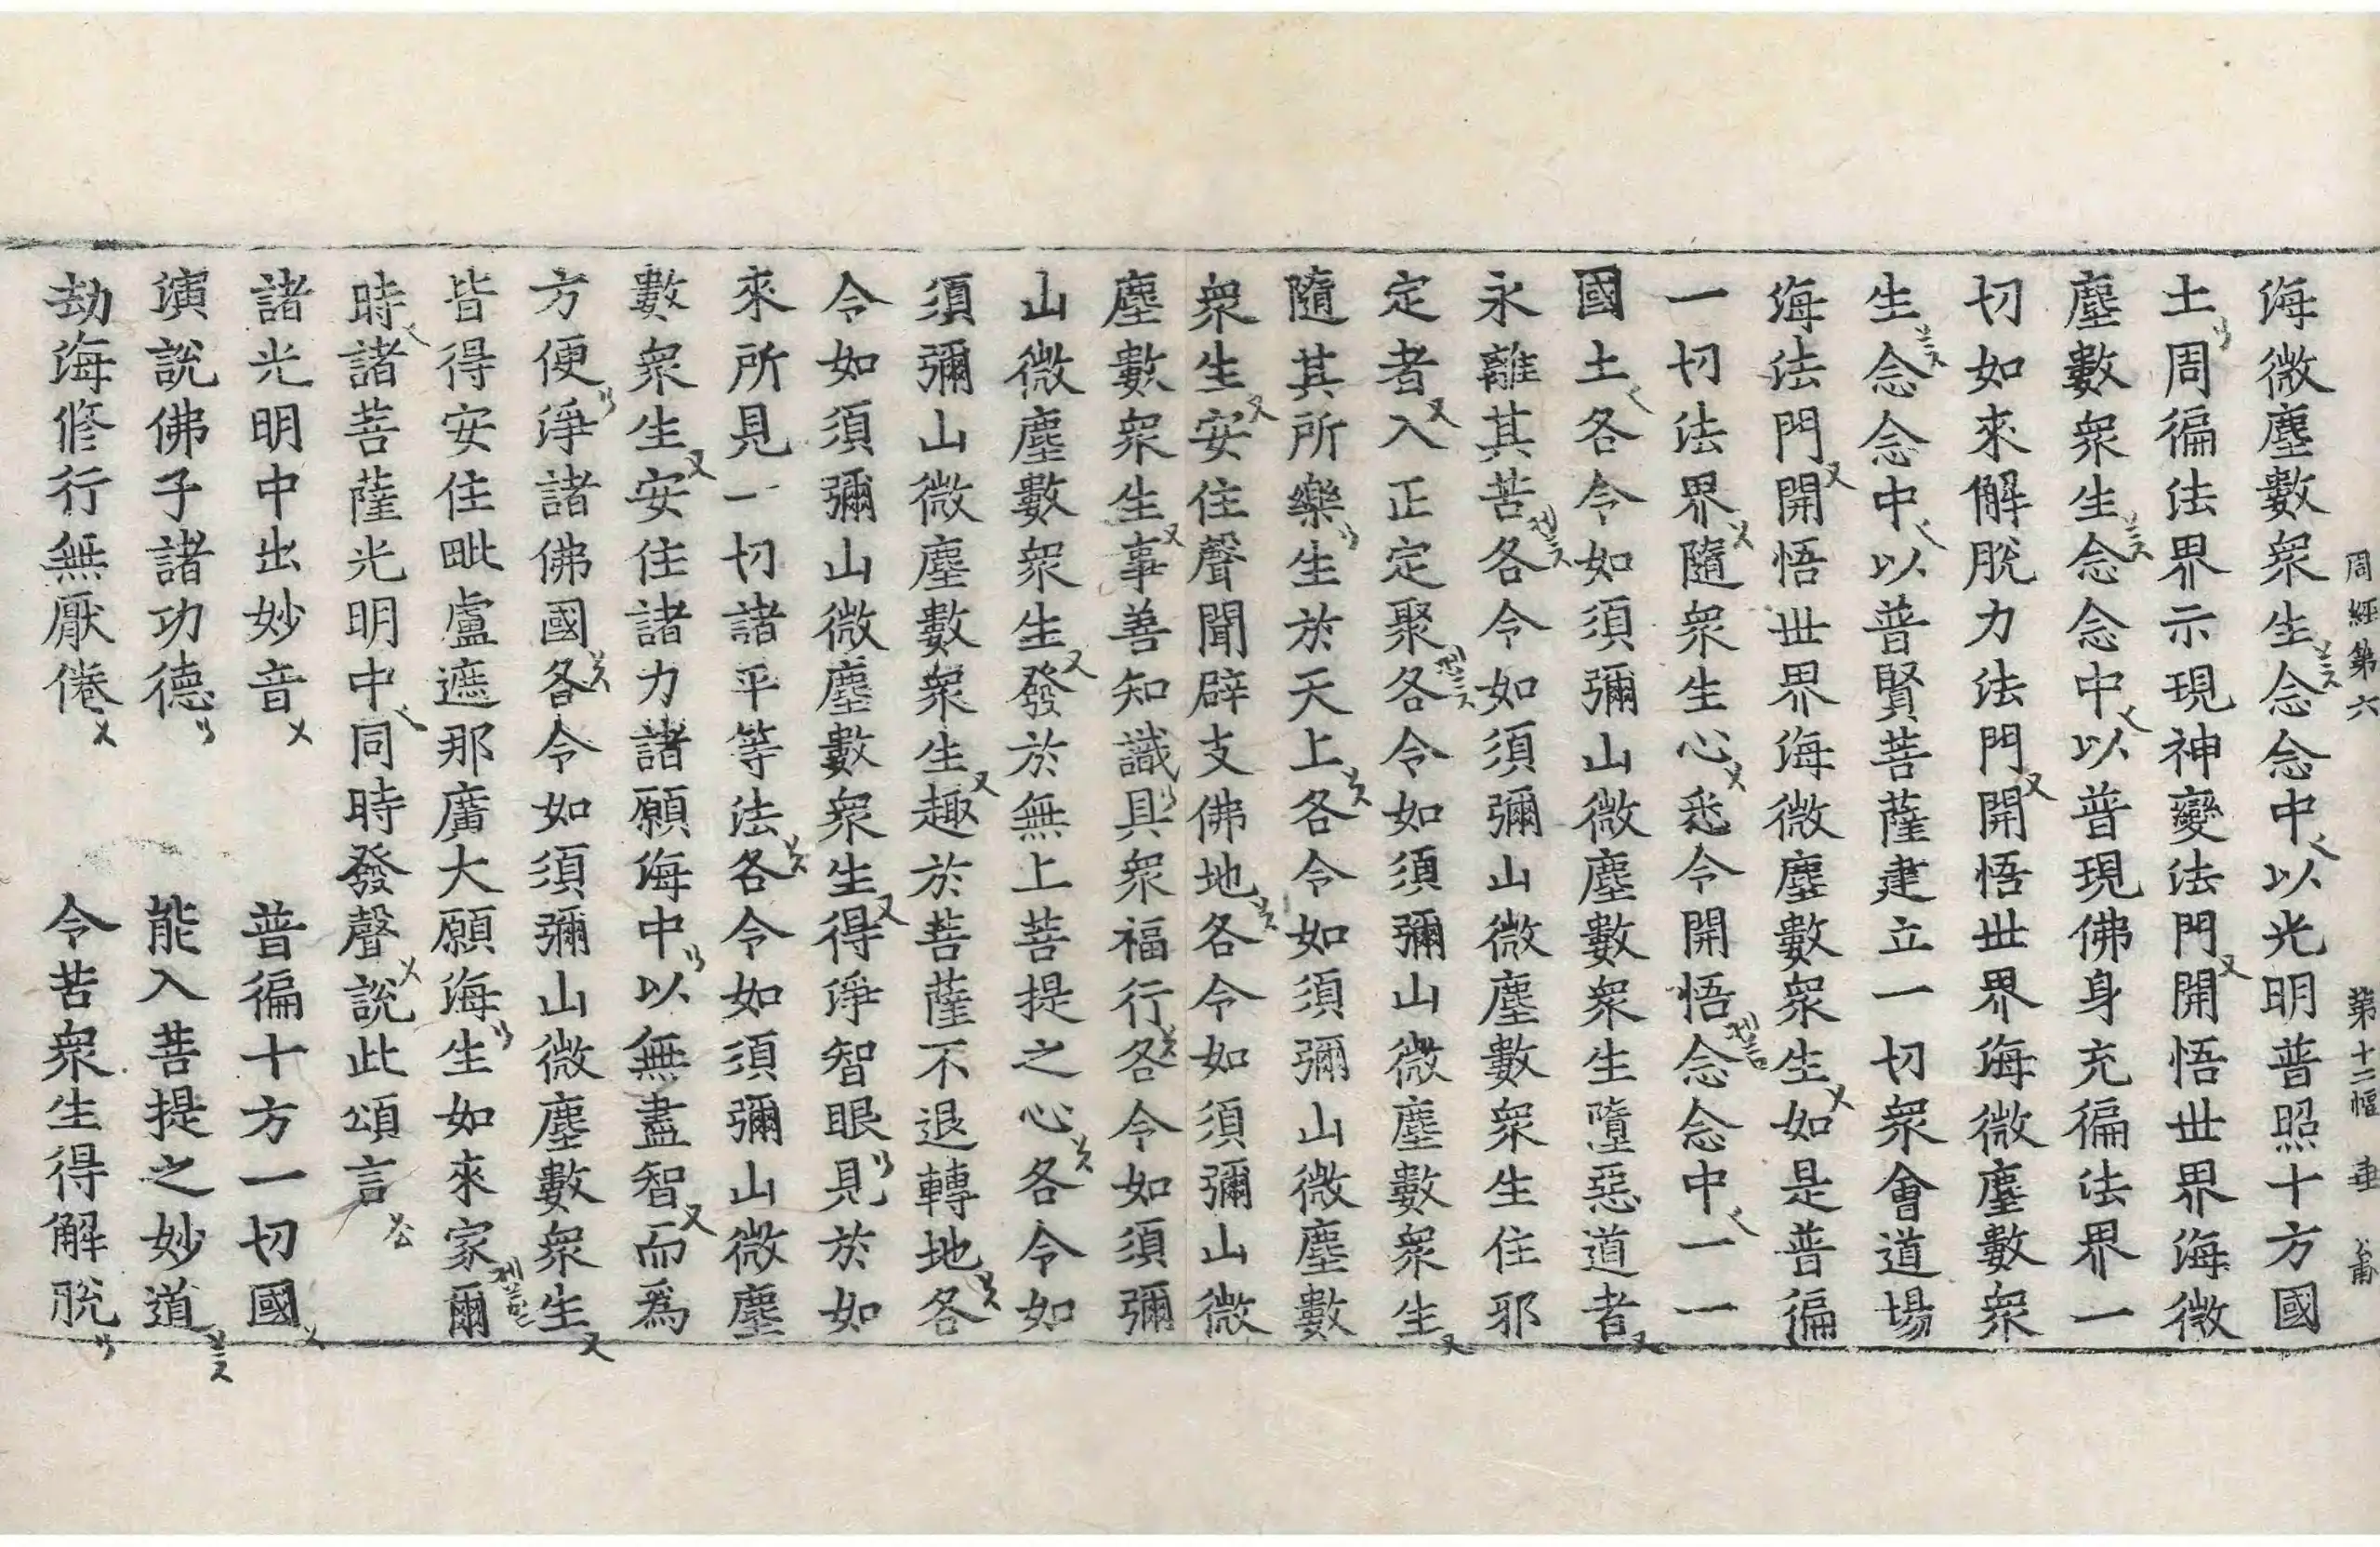 周經第六 第十二幅
海微塵數衆生念念中以光明普照十方國
土周徧法界示現神變法門開悟世界海微
塵數衆生念念中以普現佛身充徧法界一
切如來解脫力法門開悟世界海微塵數衆
生念念中以普賢菩薩建立一切衆會道場
海法門開悟世界海微塵數衆生如是普徧
一切法界隨衆生心悉令開悟念念中一一
國土各令如須彌山微塵數衆生墮惡道者
永離其苦各令如須彌山微塵數衆生住邪
定者入正定聚各令如須彌山微塵數衆生
隨其所樂生於天上各令如須彌山微塵數
衆生安住聲聞辟支佛地各令如須彌山微
塵數衆生事善知識具衆福行各令如須彌
山微塵數衆生發於無上菩提之心各令如
須彌山微塵數衆生趣於菩薩不退轉地各
令如須彌山微塵數衆生得淨智眼見於如
來所見一切諸平等法各令如須彌山微塵
數衆生安住諸力諸願海中以無盡智而爲
方便淨諸佛國各令如須彌山微塵數衆生
皆得安住毗盧遮那廣大願海生如來家爾
時諸菩薩光明中同時發聲說此頌言
諸光明中出妙音 普徧十方一切國
演說佛子諸功德 能入菩提之妙道
劫海修行無厭倦 令苦衆生得解脫